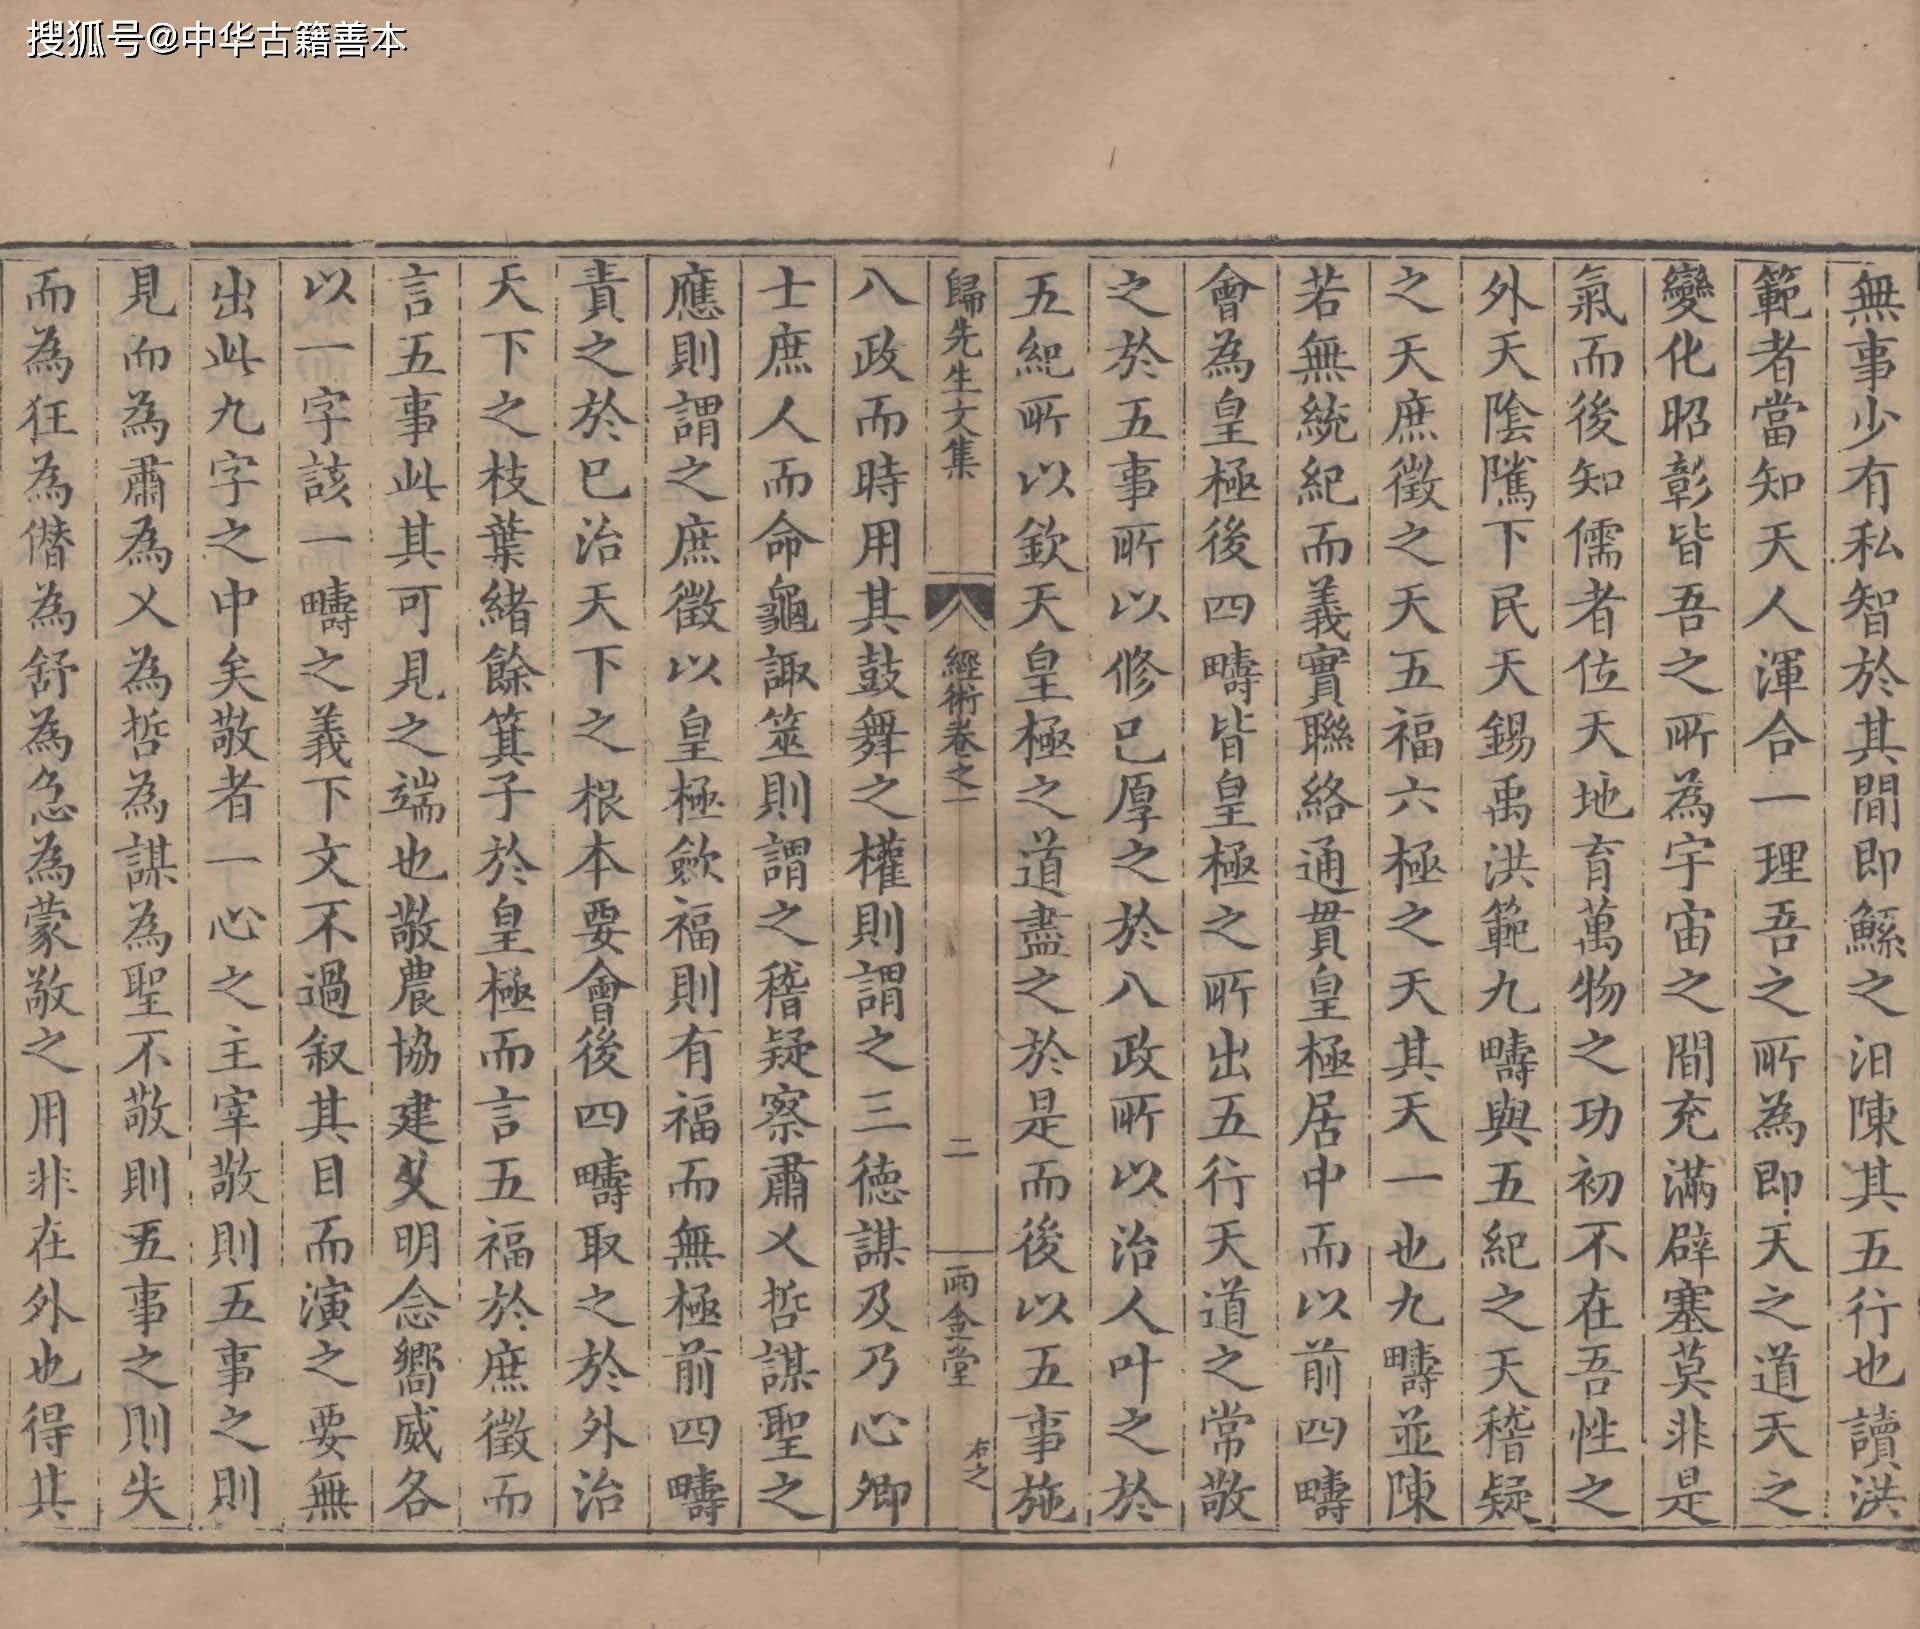 搜狐号@中华古籍善本
無事少有私智於其間即鯀之汨陳其五行也讀洪
範者當知天人渾合一理吾之所為即天之道天之
變化昭彰皆吾之所為宇宙之間充滿辟塞莫非是
氣而後知儒者位天地育萬物之功初不在吾性之
外天陰隲下民天錫禹洪範九疇與五紀之天稽疑
之天庶徵之天五福六極之天其天一也九疇並陳
若無統紀而義實聯絡通貫皇極居中而以前四疇
會為皇極後四疇皆皇極之所出五行天道之常敬
之於五事所以修己厚之於八政所以治人叶之於
五紀所以欽天皇極之道盡之於是而後以五事施
歸先生文集 經術卷之一 二 兩金堂 右之
八政而時用其鼓舞之權則謂之三德謀及乃心卿
士庶人而命龜諏筮則謂之稽疑察肅乂哲謀聖之
應則謂之庶徵以皇極歛福則有福而無極前四疇
責之於巳治天下之根本要會後四疇取之於外治
天下之枝葉緒餘箕子於皇極而言五福於庶徵而
言五事此其可見之端也敬農協建乂明念嚮威各
以一字該一疇之義下文不過叙其目而演之要無
出此九字之中矣敬者一心之主宰敬則五事之則
見而為肅為乂為哲為謀為聖不敬則五事之則失
而為狂為僭為舒為急為蒙敬之用非在外也得其